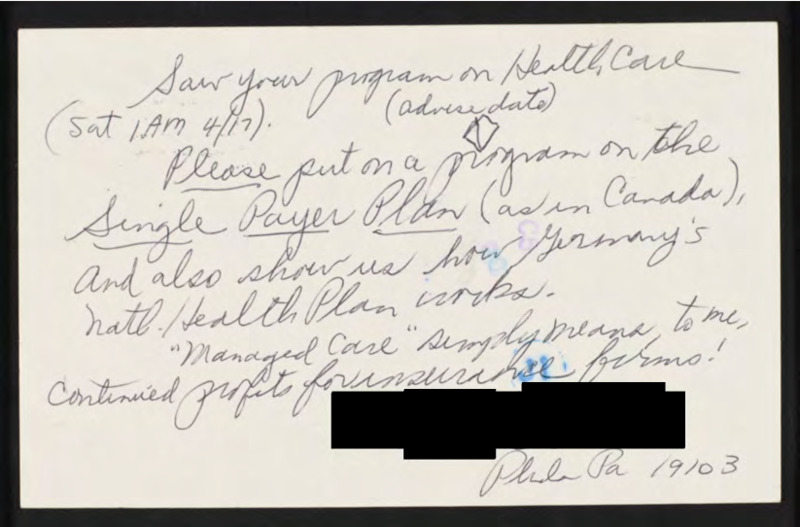 Saw your program on Health Care
(Sat 1AM 4/17). (advise date)
Please put on a program on the
Single Payer Plan (as in Canada),
and also show us how Germany's
natl. Health Plan works.
"Managed Care" simply means, to me,
continued profits for insurance firms!
Phila Pa 19103